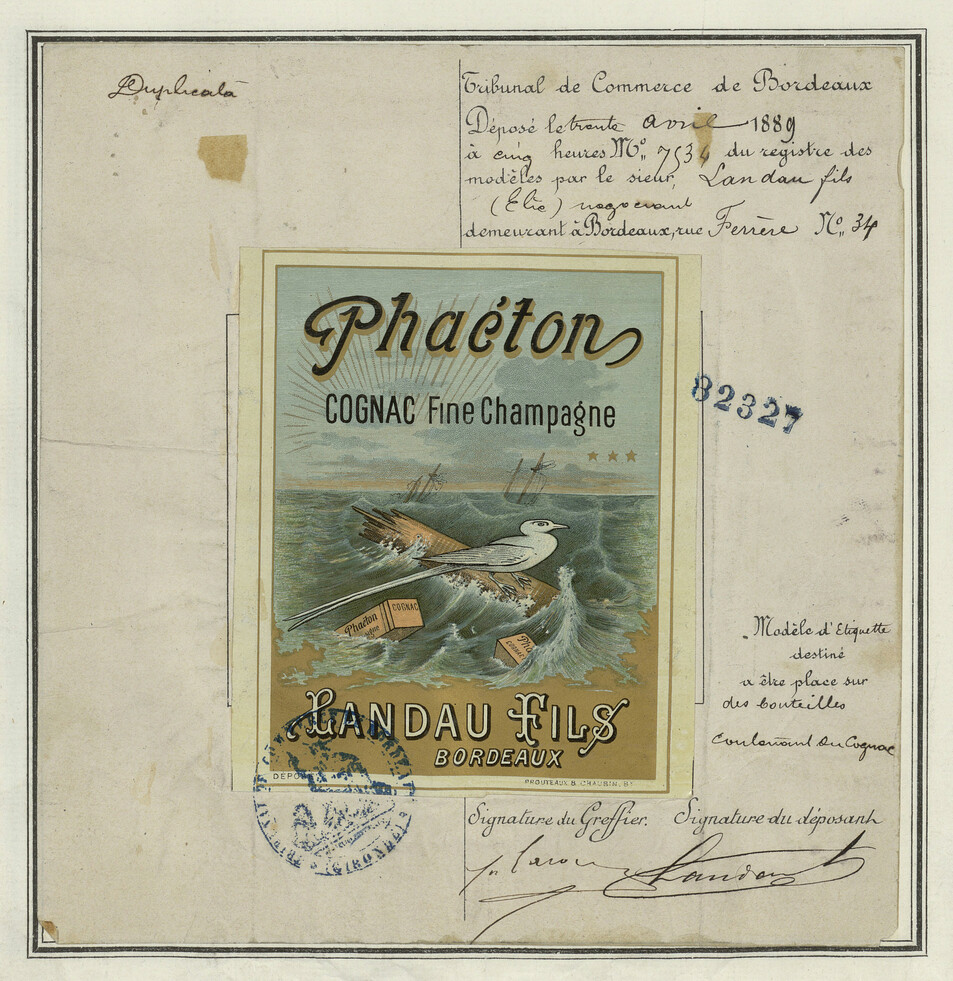 Duplicata
Tribunal de Commerce de Bordeaux
Déposé le trente avril 1889
à cinq heures No. 7534 du registre des
modèles par le sieur, Landau fils
(Elie) negociant
demeurant à Bordeaux, rue Ferrère No. 34
Phaéton
COGNAC Fine Champagne
82327
Phaéton
COGNAC
COGNAC
LANDAU FILS
BORDEAUX
DÉPO
PROUTEAUX & CHAUBIN, Bx
Modèle d'Etiquette
destiné
a être place sur
des bouteilles
contenant du Cognac
Signature du Greffier. Signature du déposant
Landau